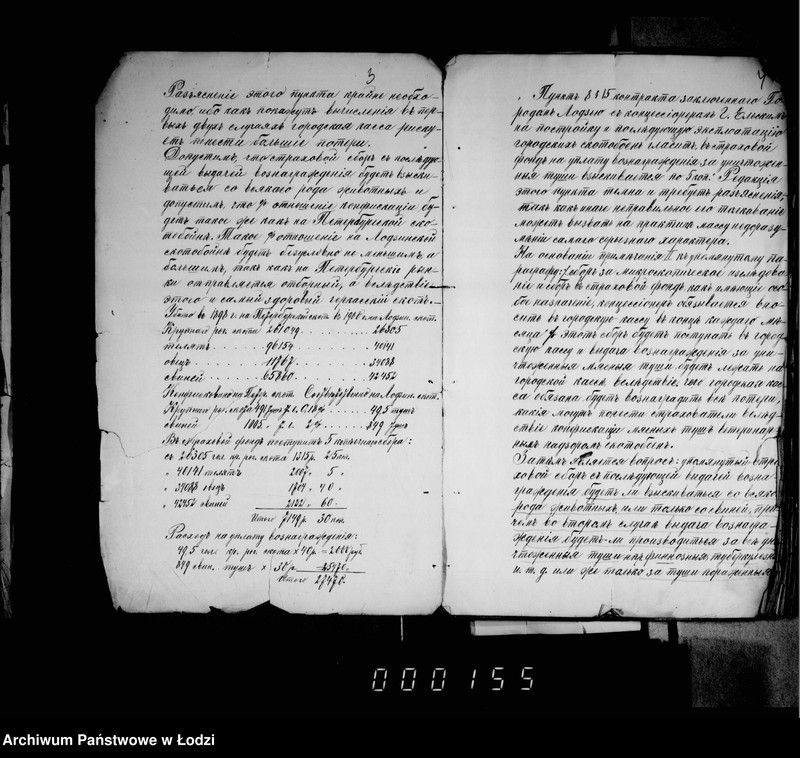 3
Разъясненіе этого пункта крайне необхо-
димо, ибо какъ покажутъ вычисленія въ пер-
выхъ двухъ случаяхъ городская касса риску-
етъ понести большіе потери.
Допустимъ, что страховой сборъ съ послѣдую-
щей выдачей вознагражденія будетъ взыски-
ваться со всякаго рода животныхъ и
допустимъ что % отношеніе конфискаціи бу-
детъ такое же какъ на Петербургской ско-
тобойнѣ. Такое % отношеніе на Лодзинской
скотобойнѣ будетъ безусловно не меньшимъ, а
большимъ, такъ какъ на Петербургскіе рын-
ки отправляется отборный, а вслѣдствіе
этого и самый здоровый скотъ.
Убито въ 1898 г. на Петербургской скот. въ 1900 г. на Лодзин. скот.
Крупнаго рог. скота 261049 26305
телятъ 96154 40141
овецъ 11767 34088
свиней 65860 42452
Конфисковано на Петер. скот. на Лодзин. скот.
495 тушъ
свиней 1885 849 тушъ
Въ страховой фондъ поступитъ 5 копѣечнаго сбора:
съ 26305 гол. кр. рог. скота 1315 р. 25 коп.
„ 40141 телятъ 2007 „ 5 „
„ 34088 овецъ 1704 „ 40 „
„ 42452 свиней 2122 „ 60 „
Итого 7149 р. 30 коп.
Расходъ на уплату вознагражденія:
495 гол. кр. рог. скота х 40 р.
849 свин. тушъ х 30 р. 25470
Итого 27470
Пунктъ 8 § 15 контракта заключеннаго Го-
родомъ Лодзью съ концессіонеромъ Г. Ельскимъ
на постройку и послѣдующую эксплоатацію
городскихъ скотобоенъ гласитъ: въ страховой
фондъ на уплату вознагражденія за уничтожен-
ныя туши взыскивается по 5 коп. Редакція
этого пункта темна и требуетъ разъясненія,
такъ какъ иначе неправильное его толкованіе
можетъ вызвать на практикѣ массу недоразу-
мѣній самаго серьезнаго характера.
На основаніи примѣчанія II къ упомянутому па-
раграфу: сборъ за микроскопическое изслѣдова-
ніе и сборъ въ страховой фондъ какъ имѣющіе осо-
ба назначеніе, концессіонеръ обязывается вно-
сить въ городскую кассу въ концѣ каждаго мѣ-
сяца этотъ сборъ будетъ поступать въ город-
скую кассу и выдача вознагражденія за уни-
чтоженныя мясныя туши будетъ лежать на
городской кассѣ, вслѣдствіе чего городская кас-
са обязана будетъ вознаградить всѣ потери,
какія могутъ понести страхователи вслѣд-
ствіе конфискаціи мясныхъ тушъ ветеринар-
нымъ надзоромъ скотобоенъ.
Затѣмъ является вопросъ: упомянутый стра-
ховой сборъ съ послѣдующей выдачей возна-
гражденія будетъ ли взыскиваться со всяко
рода животныхъ, или только со свиней, при-
чемъ во второмъ случаѣ выдача вознагра-
жденія будетъ-ли производиться за всѣ уни-
чтоженныя туши финнозныя, туберкулезныя
и. т. д. или же только за туши пораженныя
000155
Archiwum Państwowe w Łodzi